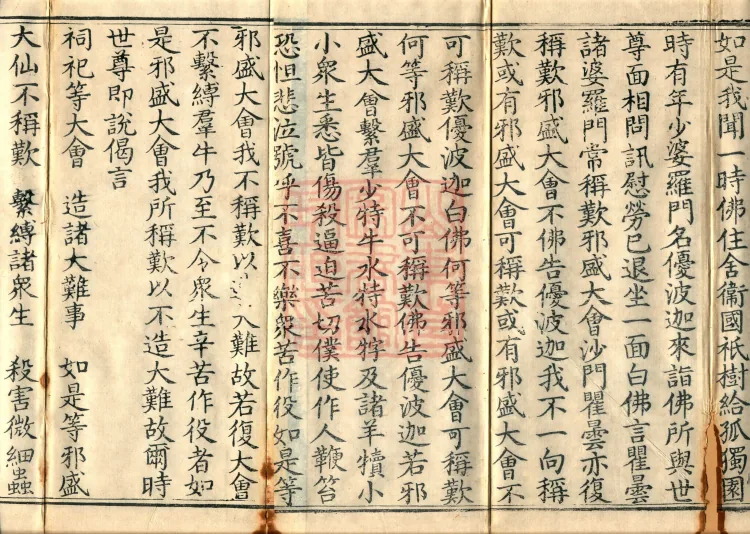 如是我聞一時佛住舍衞國祇樹給孤獨園
時有年少婆羅門名優波迦來詣佛所與世
尊面相問訊慰勞已退坐一面白佛言瞿曇
諸婆羅門常稱歎邪盛大會沙門瞿曇亦復
稱歎邪盛大會不佛告優波迦我不一向稱
歎或有邪盛大會可稱歎或有邪盛大會不
可稱歎優波迦白佛何等邪盛大會可稱歎
何等邪盛大會不可稱歎佛告優波迦若邪
盛大會繫羣少特牛水特水牸及諸羊犢小
小衆生悉皆傷殺逼迫苦切僕使作人鞭笞
恐怛悲泣號呼不喜不樂衆苦作役如是等
邪盛大會我不稱歎以難故若復大會
不繫縛羣牛乃至不令衆生辛苦作役者如
是邪盛大會我所稱歎以不造大難故爾時
世尊即說偈言
祠祀等大會　造諸大難事　如是等邪盛
大仙不稱歎　繫縛諸衆生　殺害微細蟲